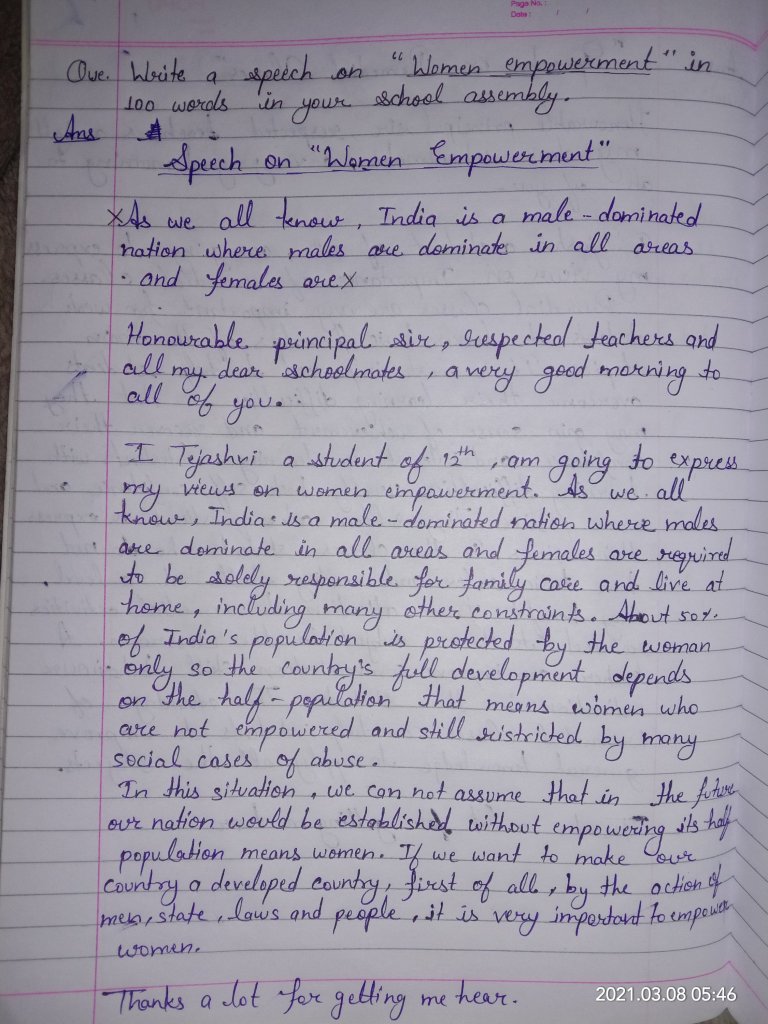 Page No.:
Date: / /
Que. Write a speech on "Women empowerment" in
100 words in your school assembly.
Ans
Speech on "Women Empowerment"
XAs we all know, India is a male-dominated
nation where males are dominate in all areas
and females areX
Honourable principal sir, respected teachers and
all my dear schoolmates, a very good morning to
all of you.
I Tejashri a student of 12th, am going to express
my views on women empowerment. As we all
know, India is a male-dominated nation where males
are dominate in all areas and females are required
to be solely responsible for family care and live at
home, including many other constraints. About 50%
of India's population is protected by the woman
only so the country's full development depends
on the half-population that means women who
are not empowered and still ristricted by many
social cases of abuse.
In this situation, we can not assume that in the future
our nation would be established without empowering its half
population means women. If we want to make our
country a developed country, first of all, by the action of
men, state, laws and people, it is very important to empower
women.
Thanks a lot for getting me hear.
2021.03.08 05:46